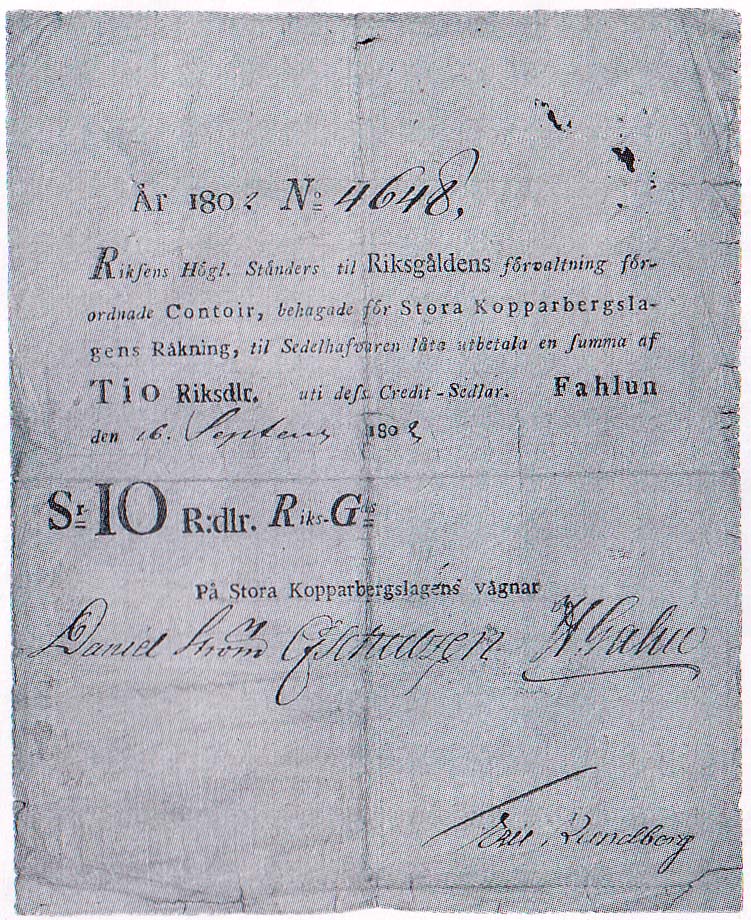 År 180 Nº 4648,
Rikſens Högl. Ständers til Riksgåldens förvaltning för-
ordnade Contoir, behagade för Stora Kopparbergsla-
gens Råkning, til Sedelhafvaren låta utbetala en ſumma af
Tio Riksdlr. uti deſs Credit-Sedlar. Fahlun
den 16. 180
Sr 10 R:dlr. Riks-Gds
På Stora Kopparbergslagens vågnar
Daniel Ström H. Gahn
Eric Lundberg